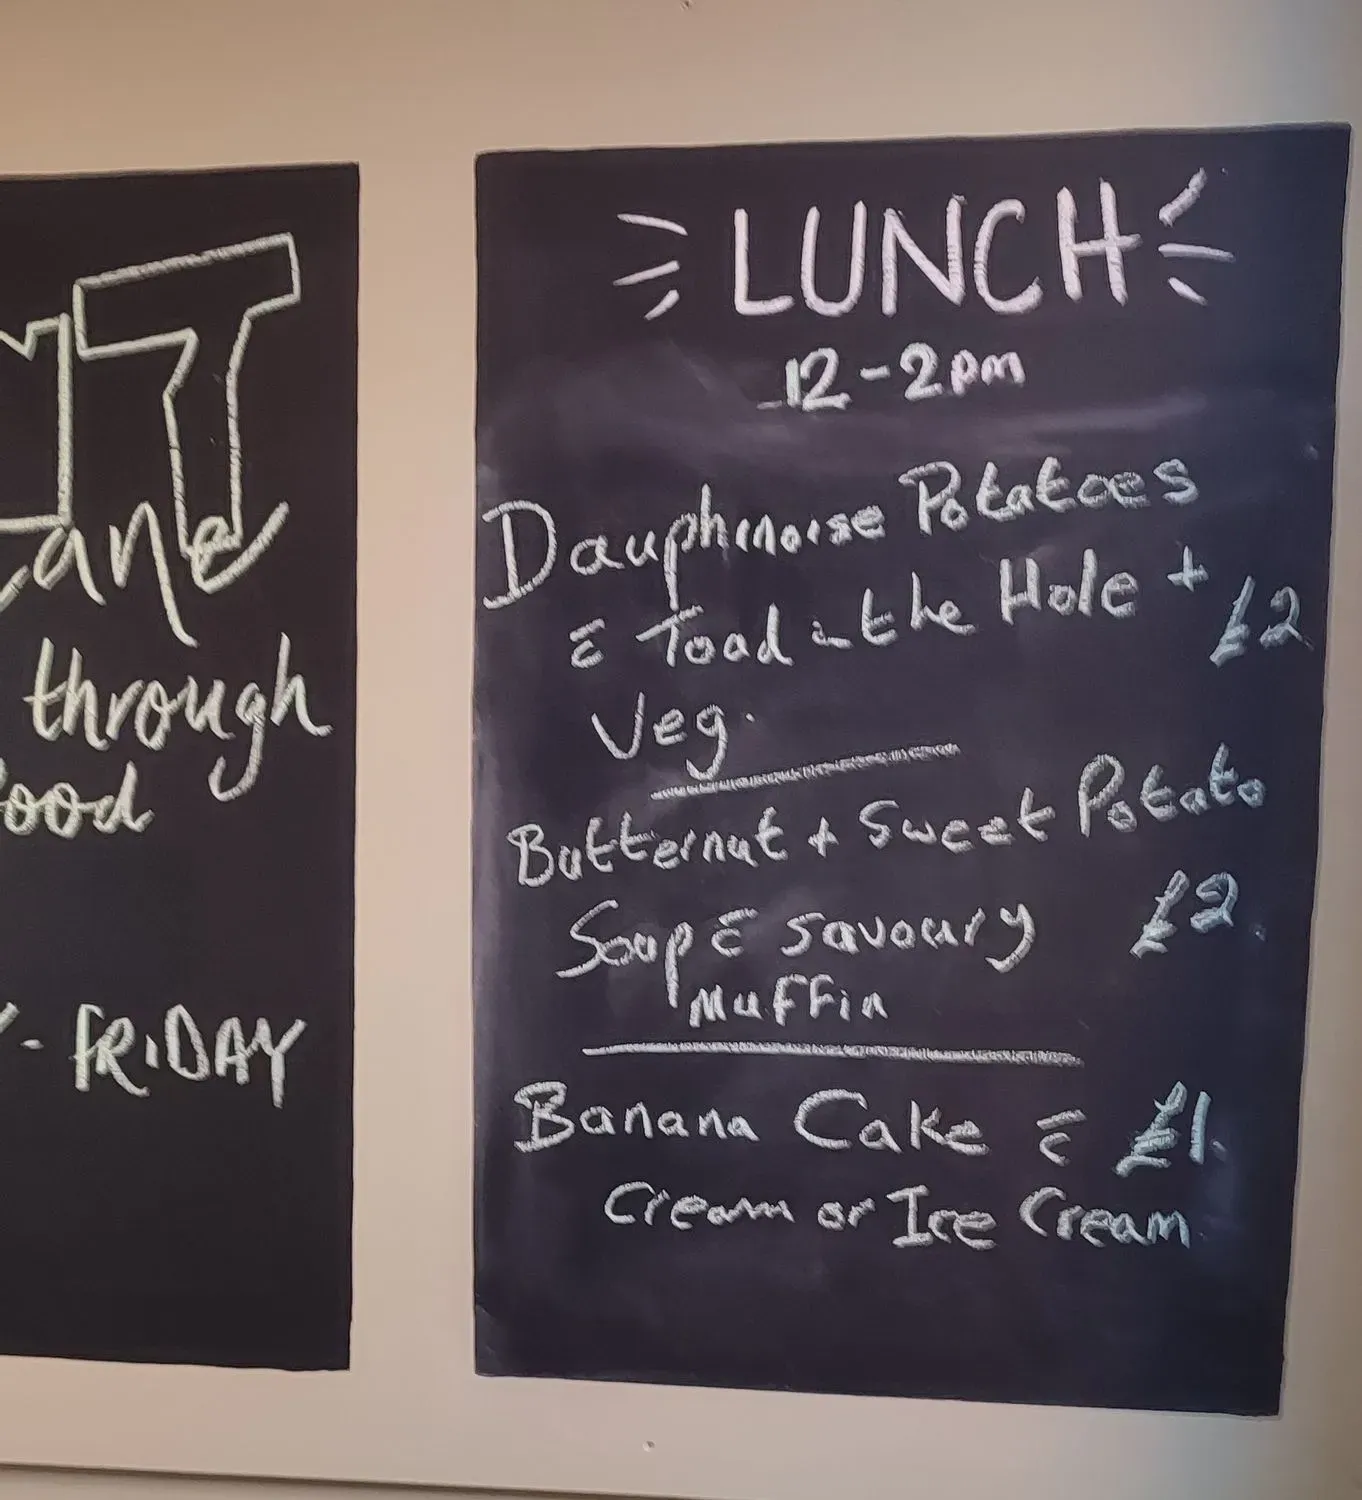 through
ood
- FRIDAY
LUNCH
12-2pm
Dauphinoise Potatoes
& Toad in the Hole +
Veg.
£2
Butternut + Sweet Potato
Soup & Savoury
Muffin
£2.
Banana Cake & £1.
Cream or Ice Cream